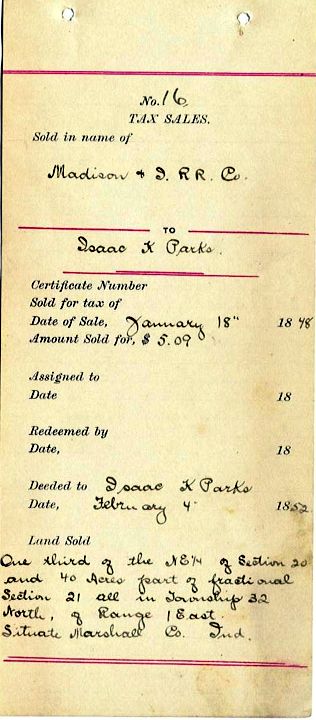 No. 16
TAX SALES.
Sold in name of
Madison & I. RR. Co.
TO
Isaac K Parks.
Certificate Number
Sold for tax of
Date of Sale, January 18" 1848
Amount Sold for, $ 5.09
Assigned to
Date 18
Redeemed by
Date, 18
Deeded to Isaac K Parks
Date, February 4" 1852
Land Sold
One third of the NE¼ of Section 20
and 40 Acres part of fractional
Section 21 all in Township 32
North, of Range 1 East.
Situate Marshall Co. Ind.